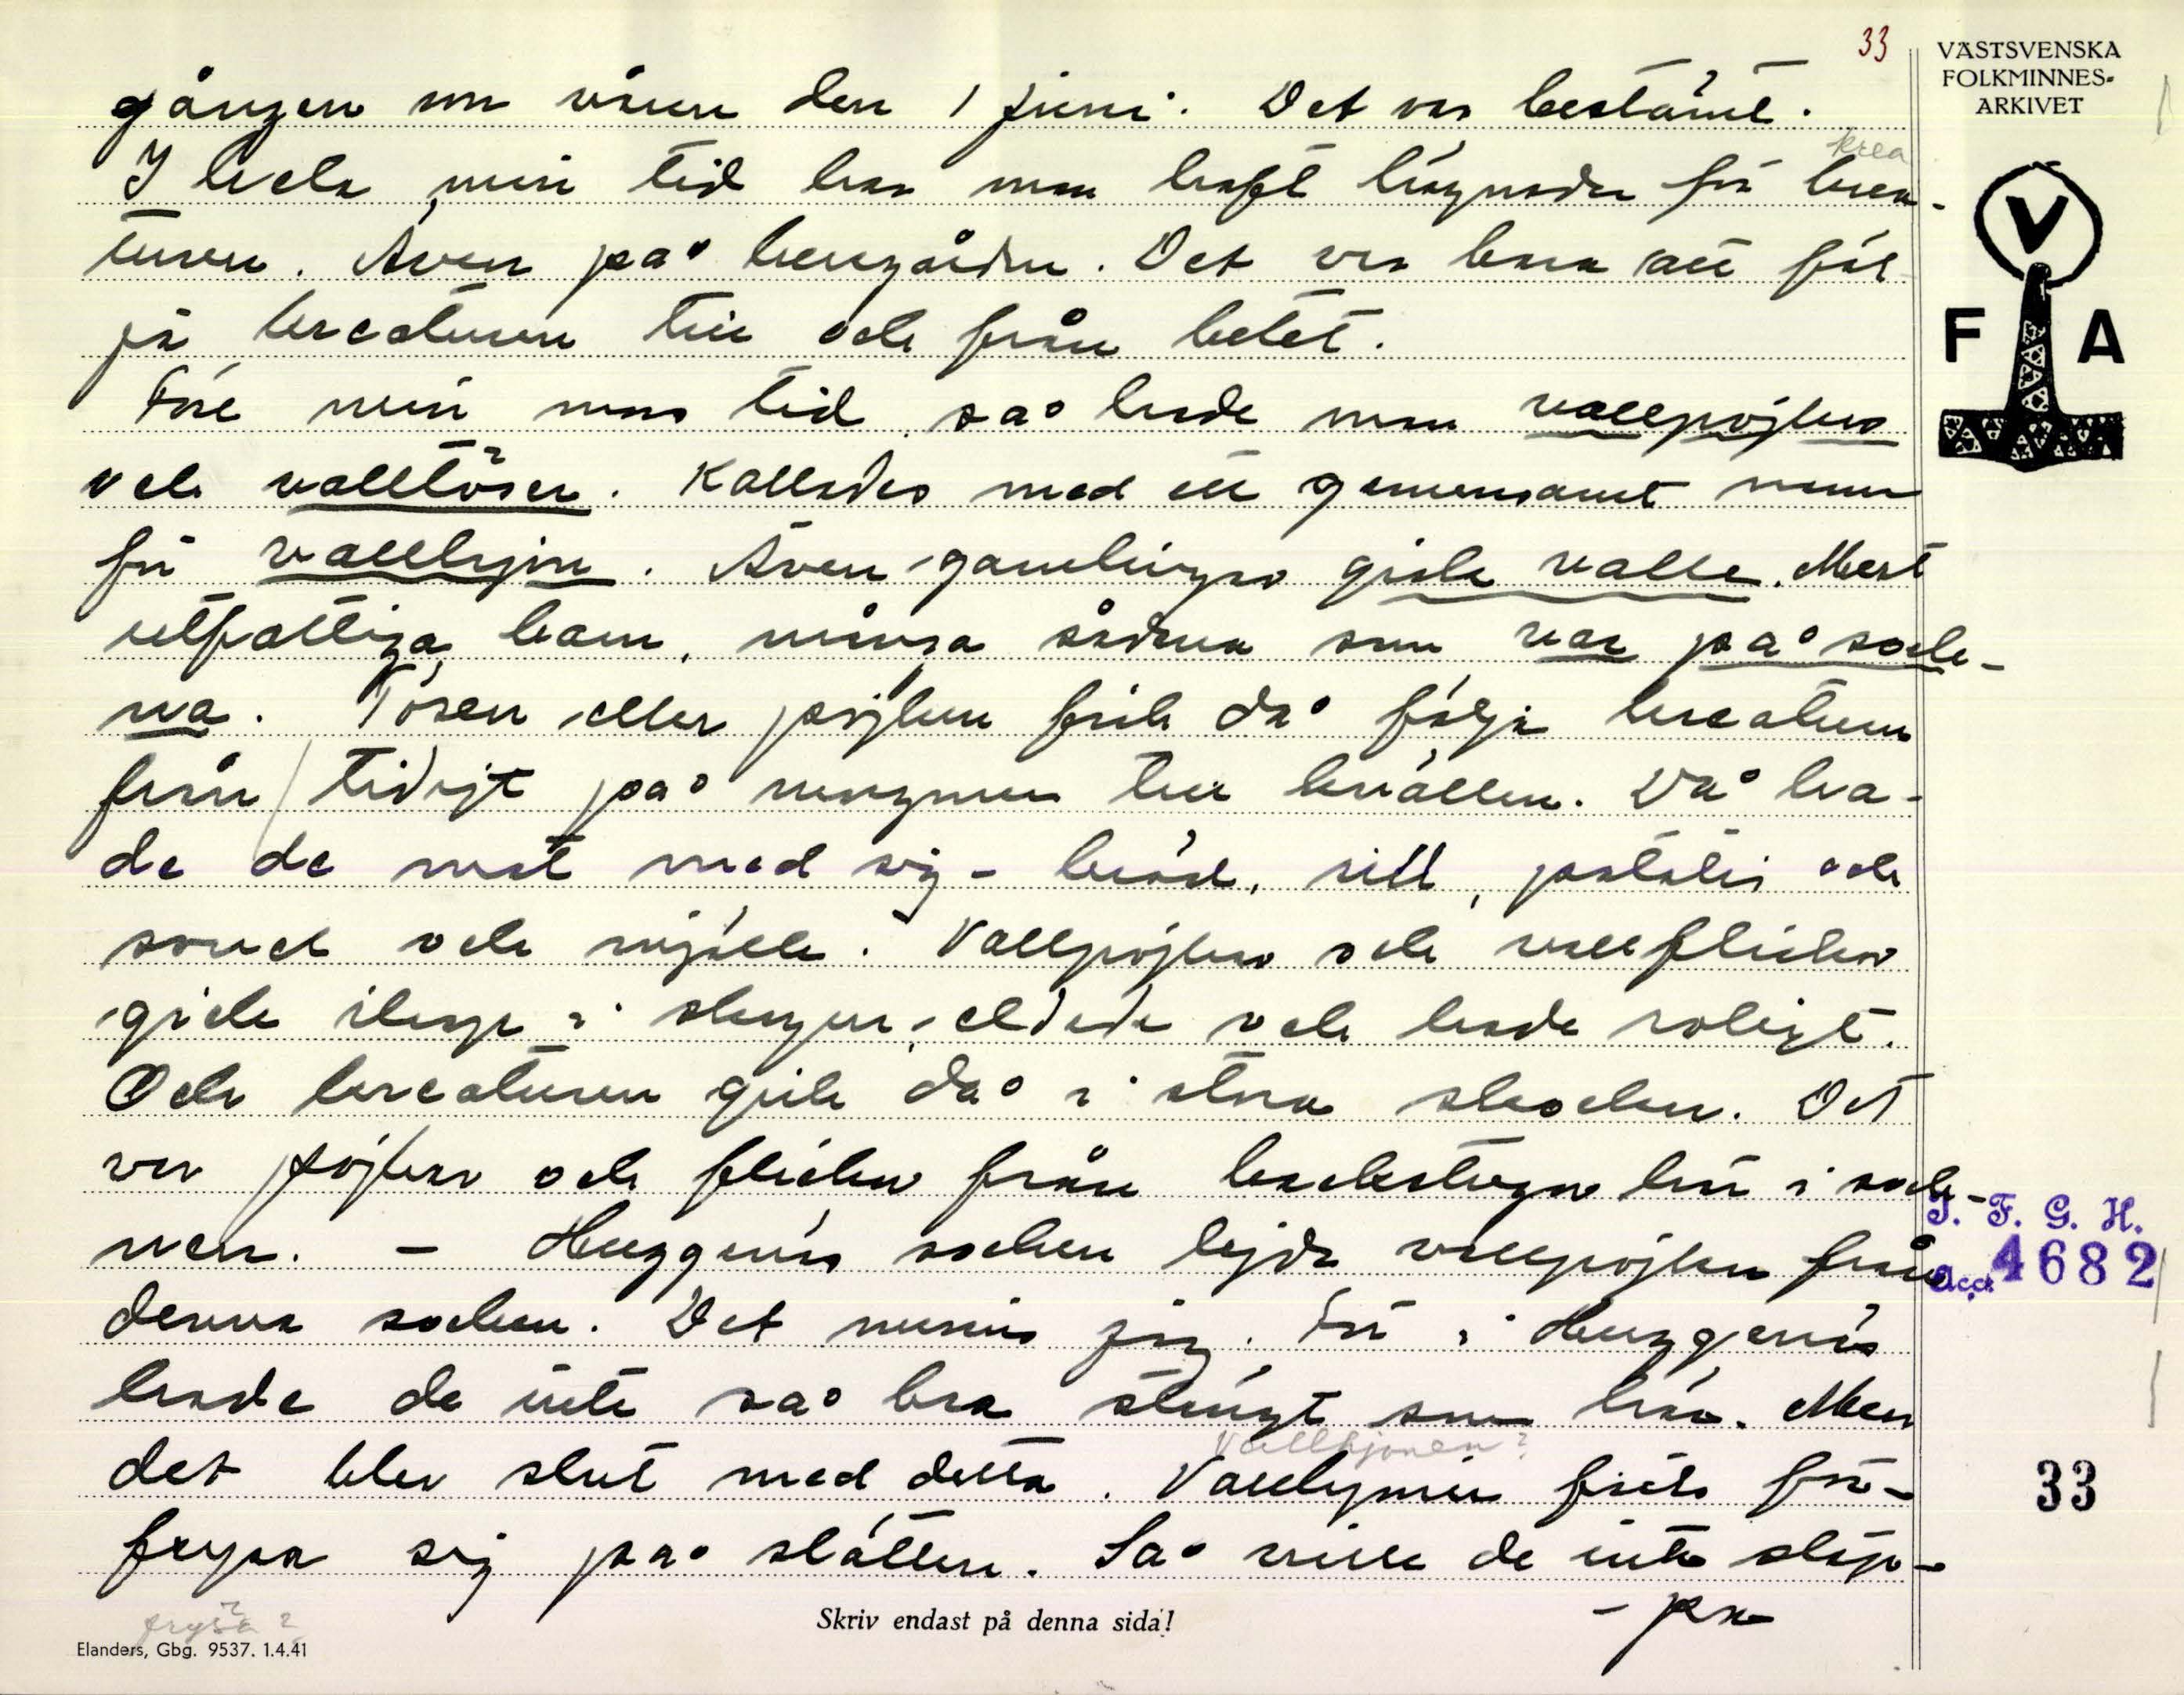 33
gången om våren den 1 juni. Det var bestämt.
krea
I hela min tid har man haft hägnader för krea-
turen. Även på herrgården. Det var bara att föl-
ja kreaturen till och från betet.
Före min mors tid så hade man vallpöjkar
och valltöser. Kallades med ett gemensamt namn
för vallhjon. Även gamlingar gick valle. Mest
utfattiga barn, många sådana som var på sock-
na. Tösen eller pöjken fick då följa kreaturen
från tidigt på morgonen till kvällen. Då ha-
de de mat med sig - bröd, sill, potatis och
sovel och mjölk. Vallpöjkar och vallflickor
gick ihop i skogen, eldade och hade roligt.
Och kreaturen gick då i stora skocken. Det
var pöjkar och flickor från backstugor här i sock-
nen. - Huggenäs socken lejde vallpöjkar från
denna socken. Det minns jag. För i Huggenäs
hade de inte så bra stängt som här. Men
Vallhjonen?
det blev slut med detta. Vallhjonen fick för-
frysa sig på slätten. Så ville de inte släp-
- pa
frysa?
Skriv endast på denna sida!
Elanders, Gbg. 9537. 1.4.41
VÄSTSVENSKA
FOLKMINNES-
ARKIVET
V
F A
I. F. G. H.
Acc. 4682
33